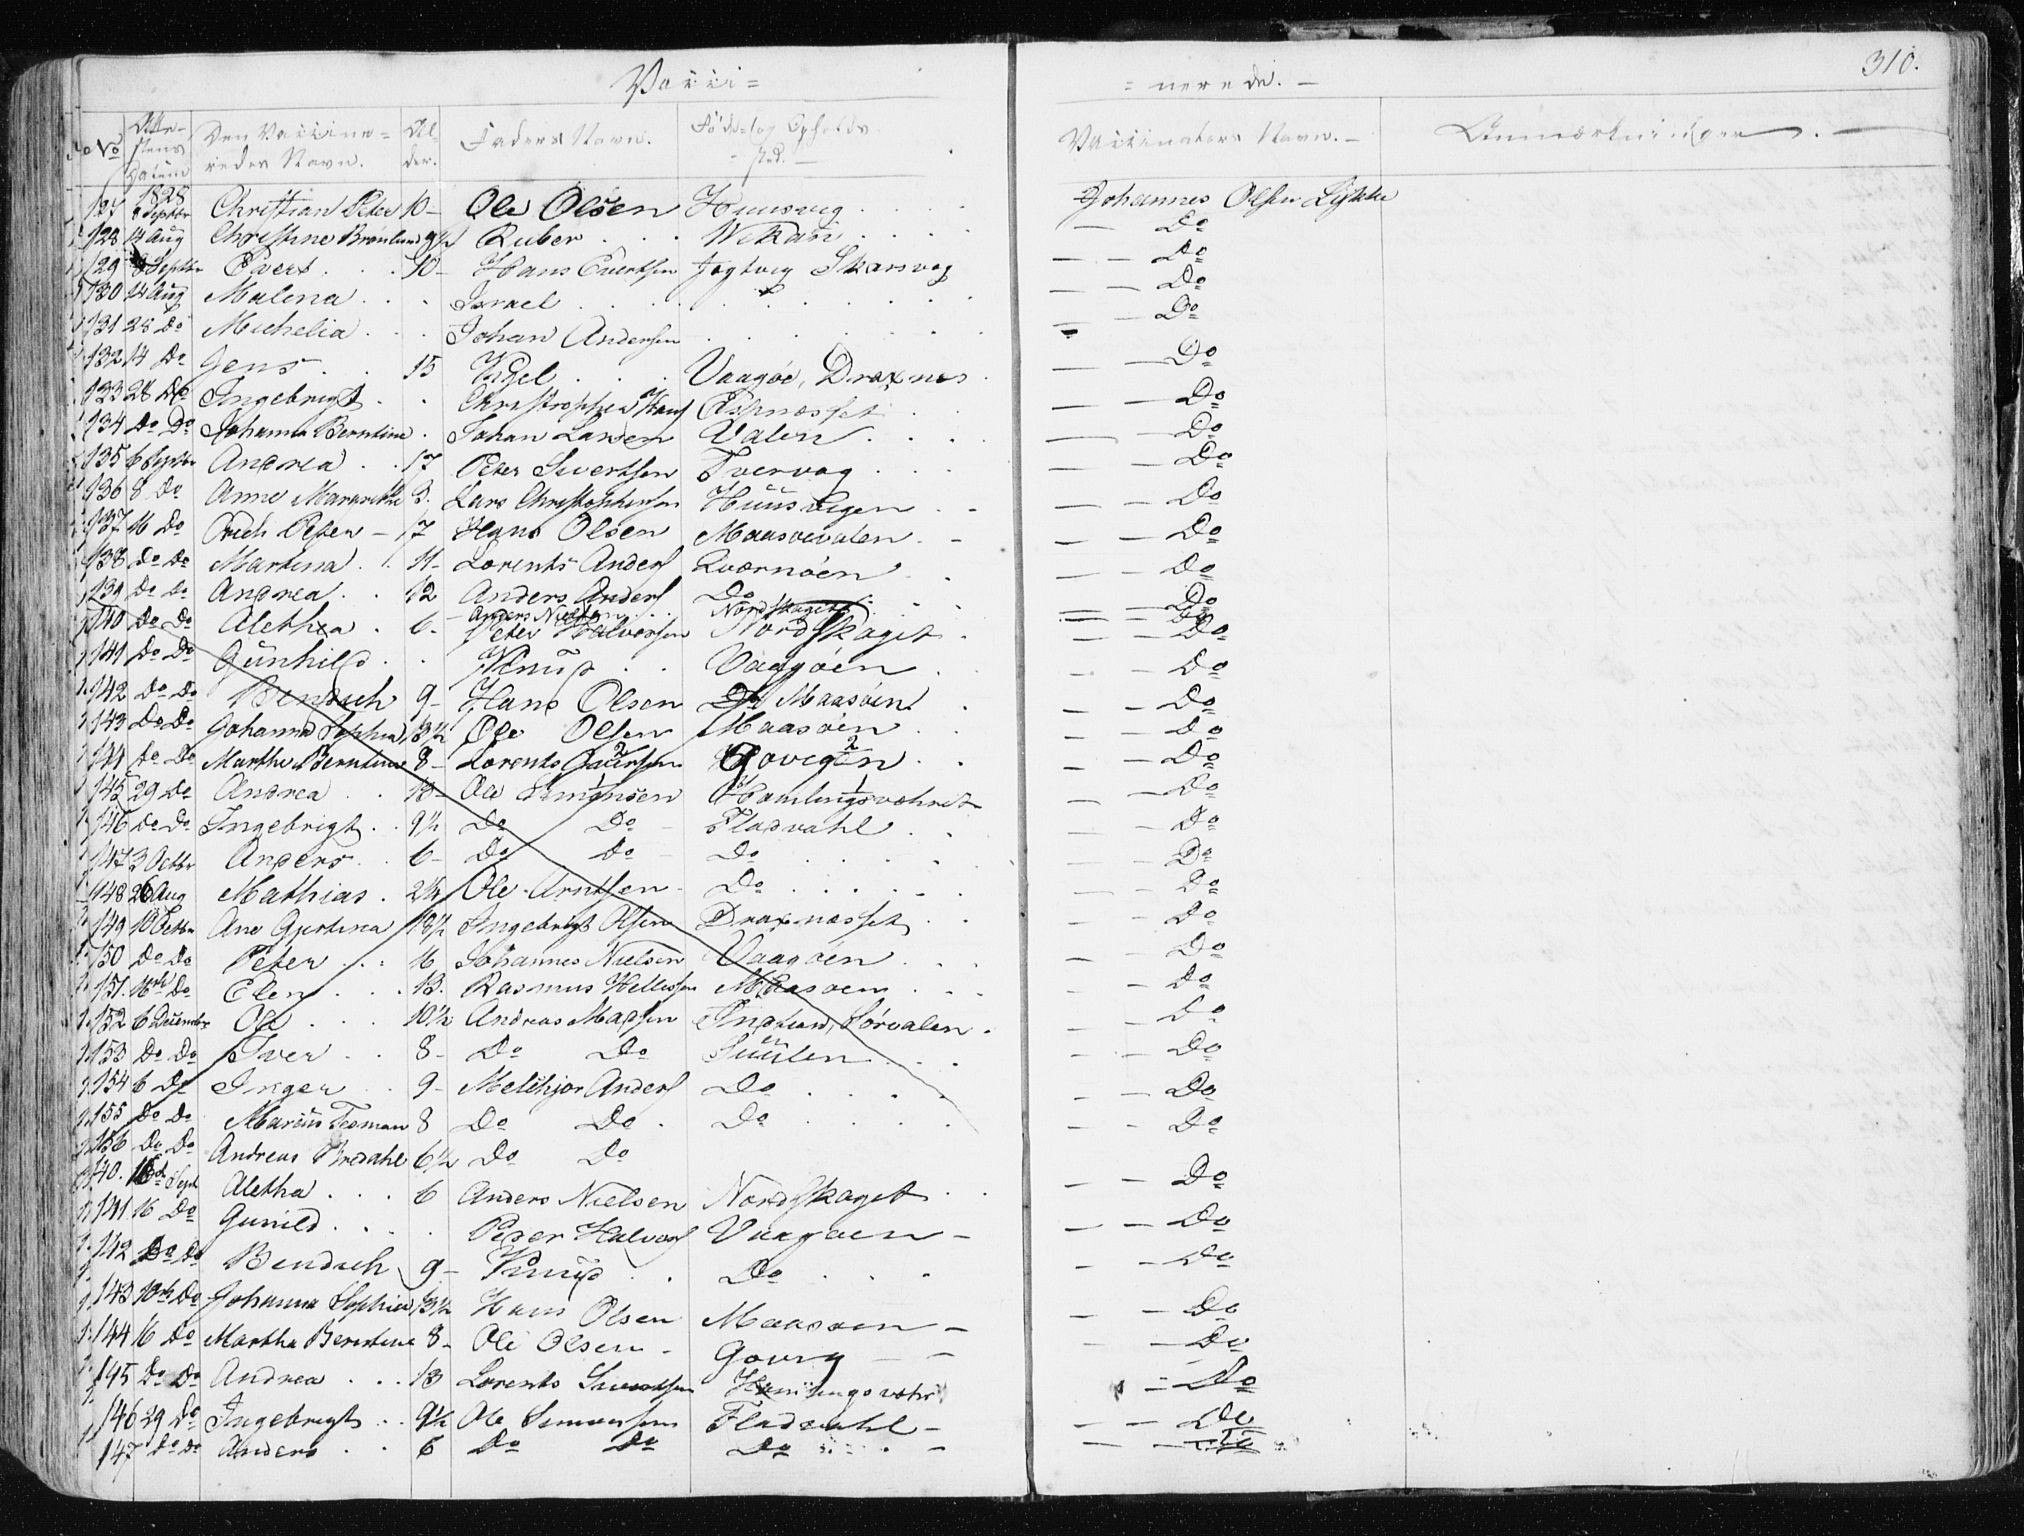 310.
Vacci=
=nerede. —
No
Atte-
stens
Datum
Den Vaccine-
redes Navn.
Al-
der.
Faders Navn.
Føde- og Opholds-
sted. —
Vaccinators Navn. —
Anmærkninger. —
1828
127 8 Septbr Christian Peter 10 — Ole Olsen Huusvig Johannes Olsen Lykke
128 14 Aug Christine Brønlund 9½ Ruber Wikan — Do
129 8 Septbr Evert 10 — Hans Evertsen Jøgtvig Skarsvag — — Do
130 14 Aug Malena Israel — — Do
131 28 Do Michelia Johan Andersen — — Do
132 14 Do Jens 15 Vaagøe, Draxnes — — Do
133 28 Do Ingebrigt Christopher Espnæsset — — Do
134 Do Do Johanna Berntine Johan Larsen Valen — — Do
135 6 Septbr Andrea 17 Peter Sivertsen Tvervag — — Do
136 8 Do Anne Margrethe 3. Lars Christophersen Huusvigen — — Do
137 16 Do Erich Peter — 7 Hans Olsen Maasøevalen — — Do
138 Do Do Martina 11 — Lorents Anders Kværnøen — — Do
139 Do Do Andrea 12 Anders Anders Do — — Do
Anders Nielsen Nordskaget — — Do
140 Do Do Aletha 6 — Peter Halvorsen Nordskaget — — Do
141 Do Do Gunhild Knud Vaagøen — — Do
142 Do Do Bendich 9 — Hans Olsen Do Maasøen — — Do
143 Do Do Johanna Sophia 13½ Ole Olsen Maasøen — — Do
144 Do Do Martha Berntine 8 — Lorents Sivertsen 2 Govigen 2 — — Do
145 29 Do Andrea 13 — Ole Simonsen 1 Hamlingsvæhret 1 — — Do
146 Do Do Ingebrigt 9½ Do Do — Fladvahl — — Do
147 3 Octbr Anders 6 — Do Do — Do — — Do
148 26 Aug Mathias 2¼ Ole Arntsen Do — — Do
149 10 Octbr Ane Gjertina 13½ Ingebrigt Olsen Draxnæsset — — Do
150 Do Do Peter 16 Johannes Nielsen Vaagøen — — Do
151. 16de Do Elen 13. Rasmus Hellesen Maasøen — — Do
152 6 December Ole 10½ Andreas Madsen Indland, Sørvalen — — Do
153 Do Do Iver 8 — Do Do Suulen — — Do
154 6 Do Inger 9 — Melchjor Anders Do — — Do
155 Do Do Marcus Tesman 8 Do Do Do — — Do
156 Do Do Andreas Bredahl 6½ Do Do
140. 16de Sept Aletha 6 Anders Nielsen Nordskaget — — Do
141 16 Do Gunild Peder Halvors Vaagøen — — — Do
142 Do Do Bendich 9 — Knud Do — — Do
143 10de Do Johanna Sophia 13½ Hans Olsen Maasøen — — — Do
144 16 Do Martha Berntine 8 — Ole Olsen Govig — — — Do
145 Do Do Andrea 13 Lorents Sivertsen — Do
146 29 Do Ingebrigt 9½ Ole Simonsen Fladvahl — — — Do
147 Do Do Anders 6 Do Do Do — — — Do